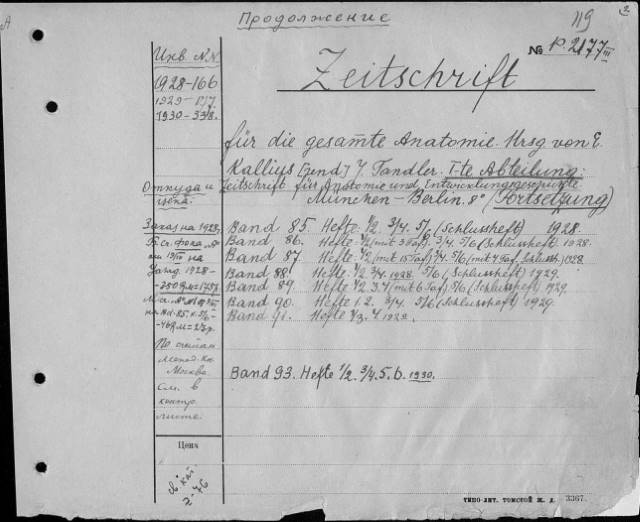 Продолжение
119
2
№ р. 2177 III
Инв. N.N.
1928-166
1930-338.
Zeitschrift
für die gesam̅te Anatomie. Hrsg von E.
Kallius [und] J. Tandler. I-te Abteilung:
Zeitschrift für Anatomie und Entwicklungsgeschichte
München-Berlin. 8° (Fortsetzung)
Откуда и
цена.
Заказ на 1928
Band 85. Hefte 1/2 3/4 5/6 (Schlussheft) 1928.
Band 86. Hefte 1/2 (mit 3 Taf.) 3/4. 5/6 (Schlussheft) 1928.
Band 87. Hefte 1/2 (mit 15 Taf.) 3/4. 5/6 (mit 4 Taf. Schlussh.) 1928
Band 88. Hefte 1/2 3/4. 1928. 5/6 (Schlussheft) 1929.
Band 89. Hefte 1/2 3.4 (mit 6 Taf.) 5/6 (Schlussheft) 1929.
Band 90. Hefte 1.2. 3/4. 5/6 (Schlussheft) 1929.
Band 91. Hefte 1/2. 4 1929.
По
Москва
См. в
контр.
листе.
Band 93. Hefte 1/2. 3/4. 5. 6. 1930.
Цена
2-76
ТИПО-ЛИТ. ТОМСКОЙ Ж. Д. 3367.